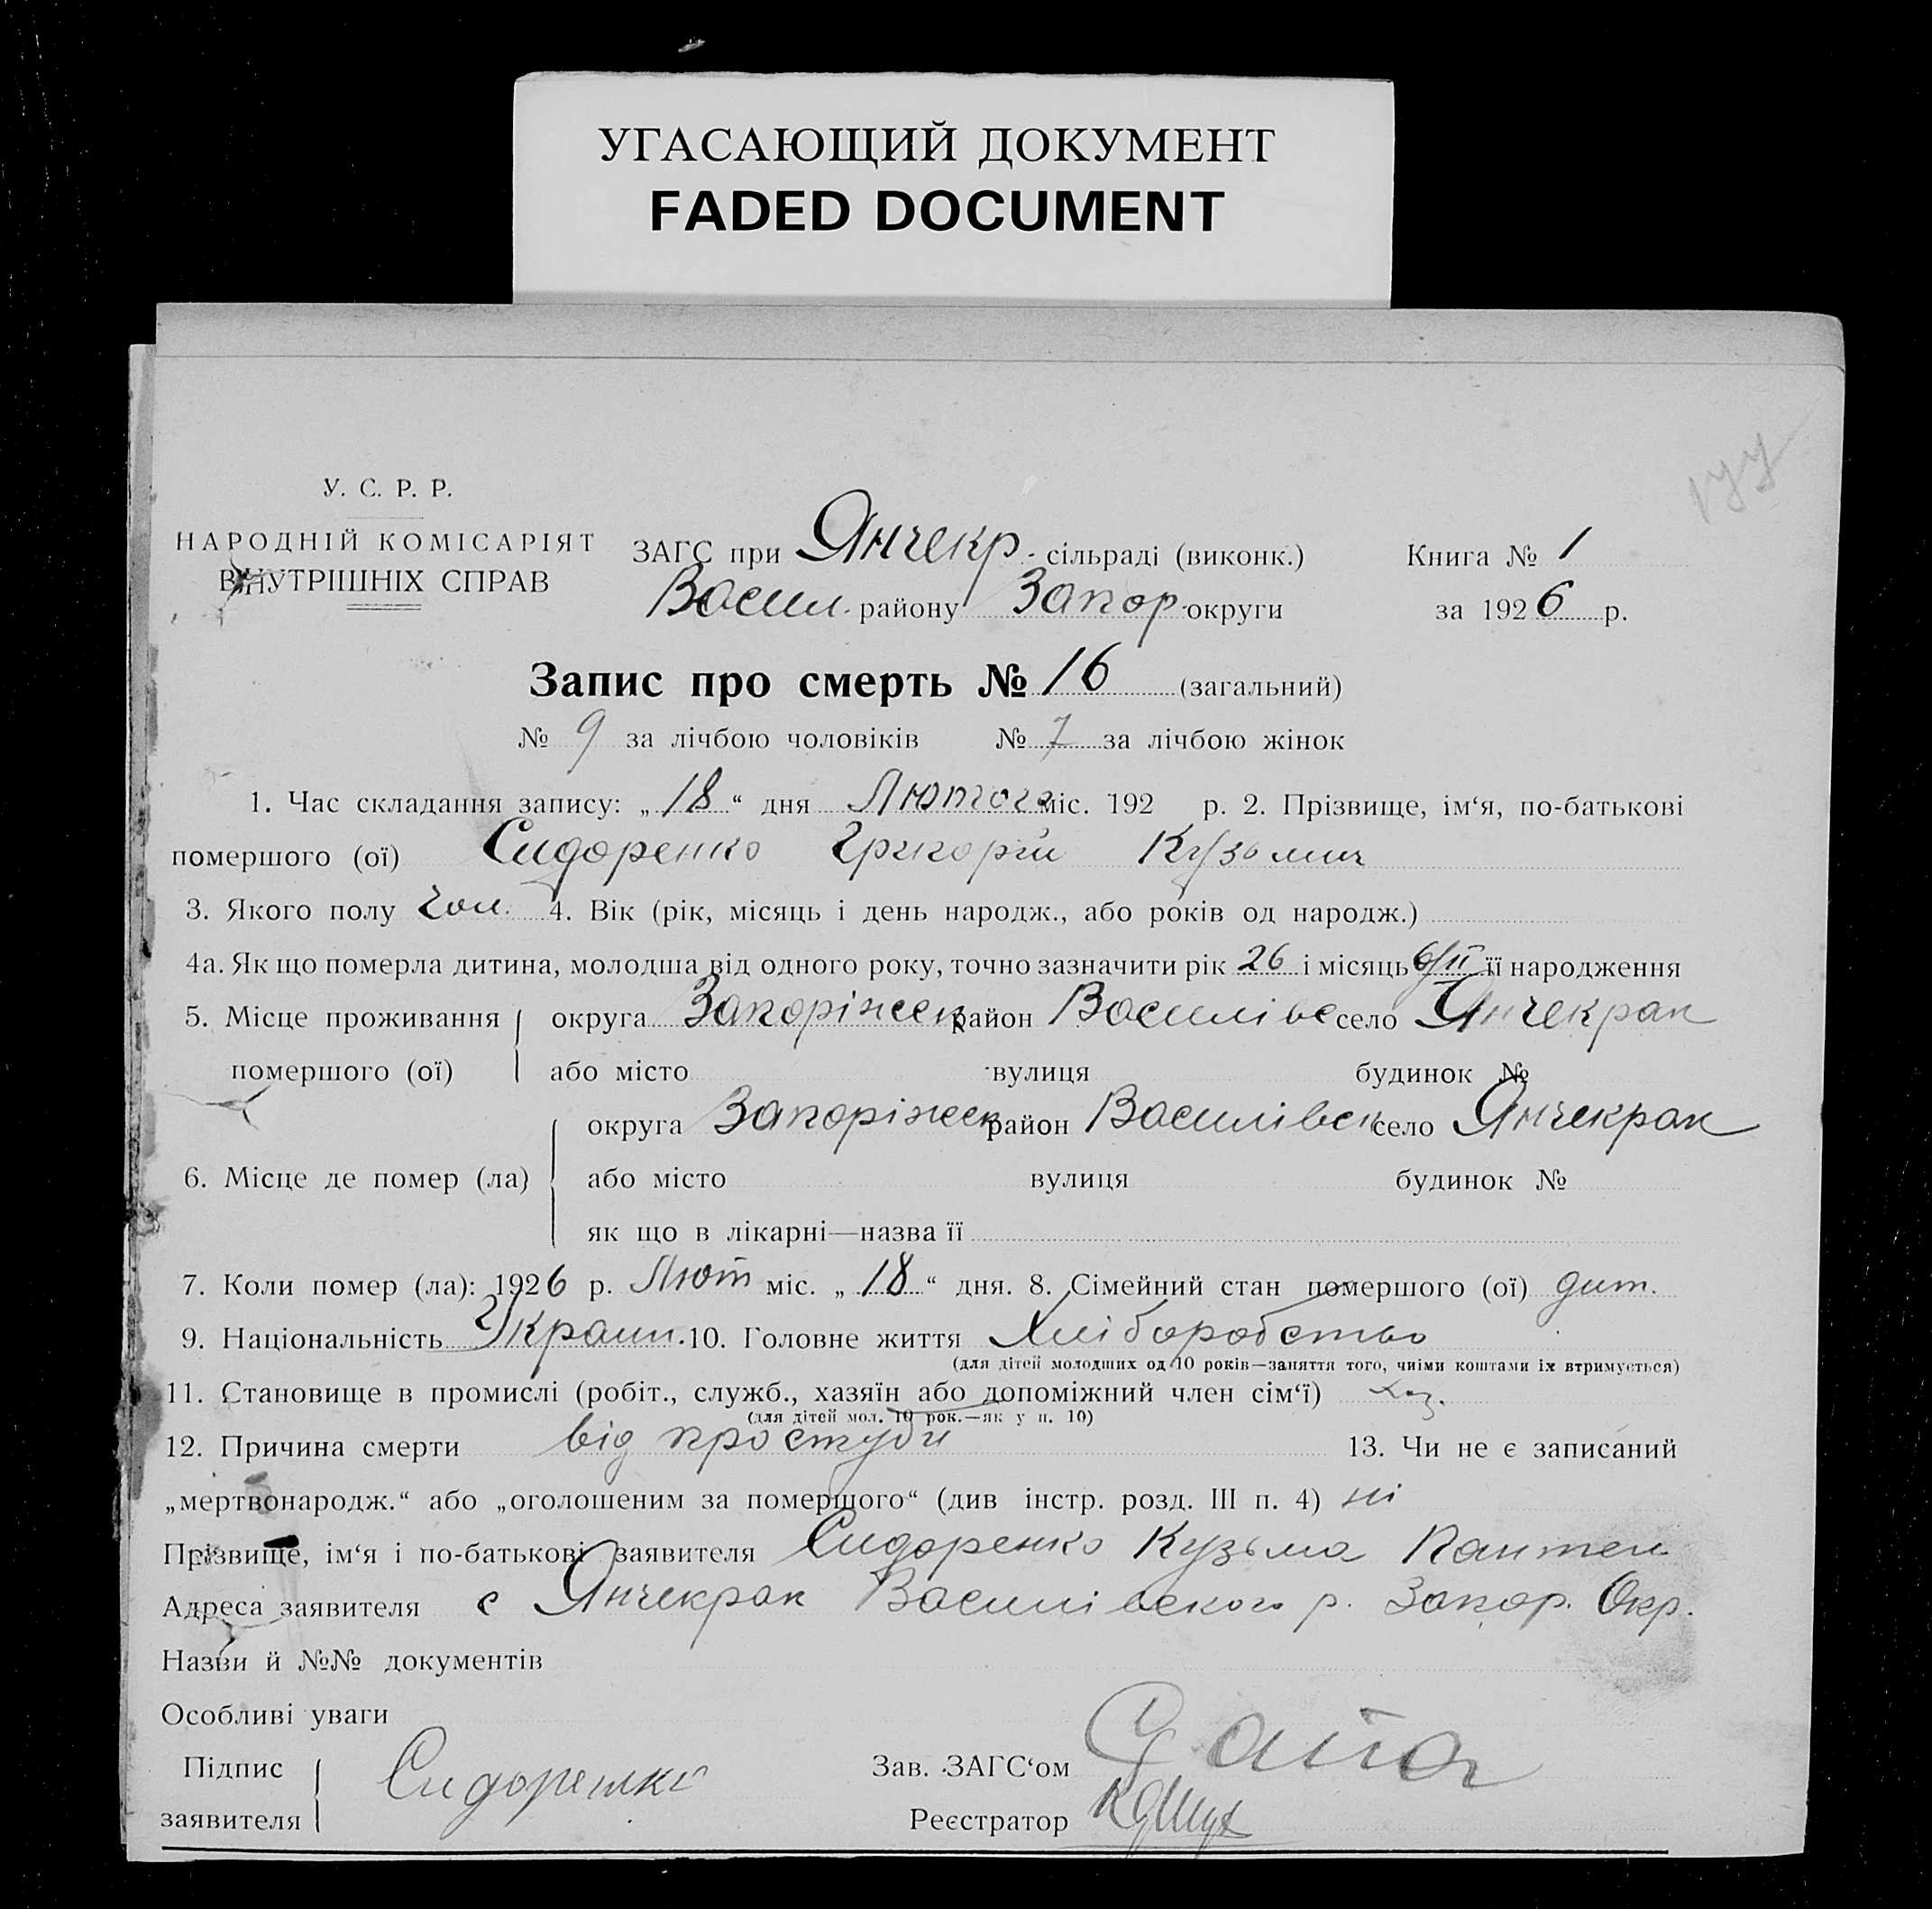 УГАСАЮЩИЙ ДОКУМЕНТ
FADED DOCUMENT
У. С. Р. Р.
НАРОДНІЙ КОМІСАРІЯТ
ВНУТРІШНІХ СПРАВ
ЗАГС при Янчекр. сільраді (виконк.) Книга № 1
Васил. району Запор. округи за 1926 р.
Запис про смерть № 16 (загальний)
№ 9 за лічбою чоловіків № 7 за лічбою жінок
1. Час складання запису: „18“ дня Лютого міс. 192 р. 2. Прізвище, ім‘я, по-батькові
помершого (ої) Сидоренко Григорій Кузьмич
3. Якого полу чол. 4. Вік (рік, місяць і день народж., або років од народж.)
4а. Як що померла дитина, молодша від одного року, точно зазначити рік 26 і місяць 6/II її народження
5. Місце проживання округа Запоріжськ район Василівс село Янчекрак
помершого (ої) або місто вулиця будинок №
округа Запоріжськ район Василівськ село Янчекрак
6. Місце де помер (ла) або місто вулиця будинок №
як що в лікарні—назва її
7. Коли помер (ла): 1926 р. Лют міс. „18“ дня. 8. Сімейний стан помершого (ої) дит.
9. Національність Украин. 10. Головне життя Хліборобство
(для дітей молодших од 10 років—заняття того, чиїми коштами їх втримується)
11. Становище в промислі (робіт., служб., хазяїн або допоміжний член сім‘ї) хаз.
(для дітей мол. 10 рок.—як у п. 10)
12. Причина смерти від простуди 13. Чи не є записаний
„мертвонародж.“ або „оголошеним за помершого“ (див інстр. розд. III п. 4) ні
Прізвище, ім‘я і по-батькові заявителя Сидоренко Кузьма Пантел
Адреса заявителя с Янчекрак Василівського р. Запор. Окр.
Назви й №№ документів
Особливі уваги
Підпис Сидоренко Зав. ЗАГС‘ом
заявителя Реєстратор